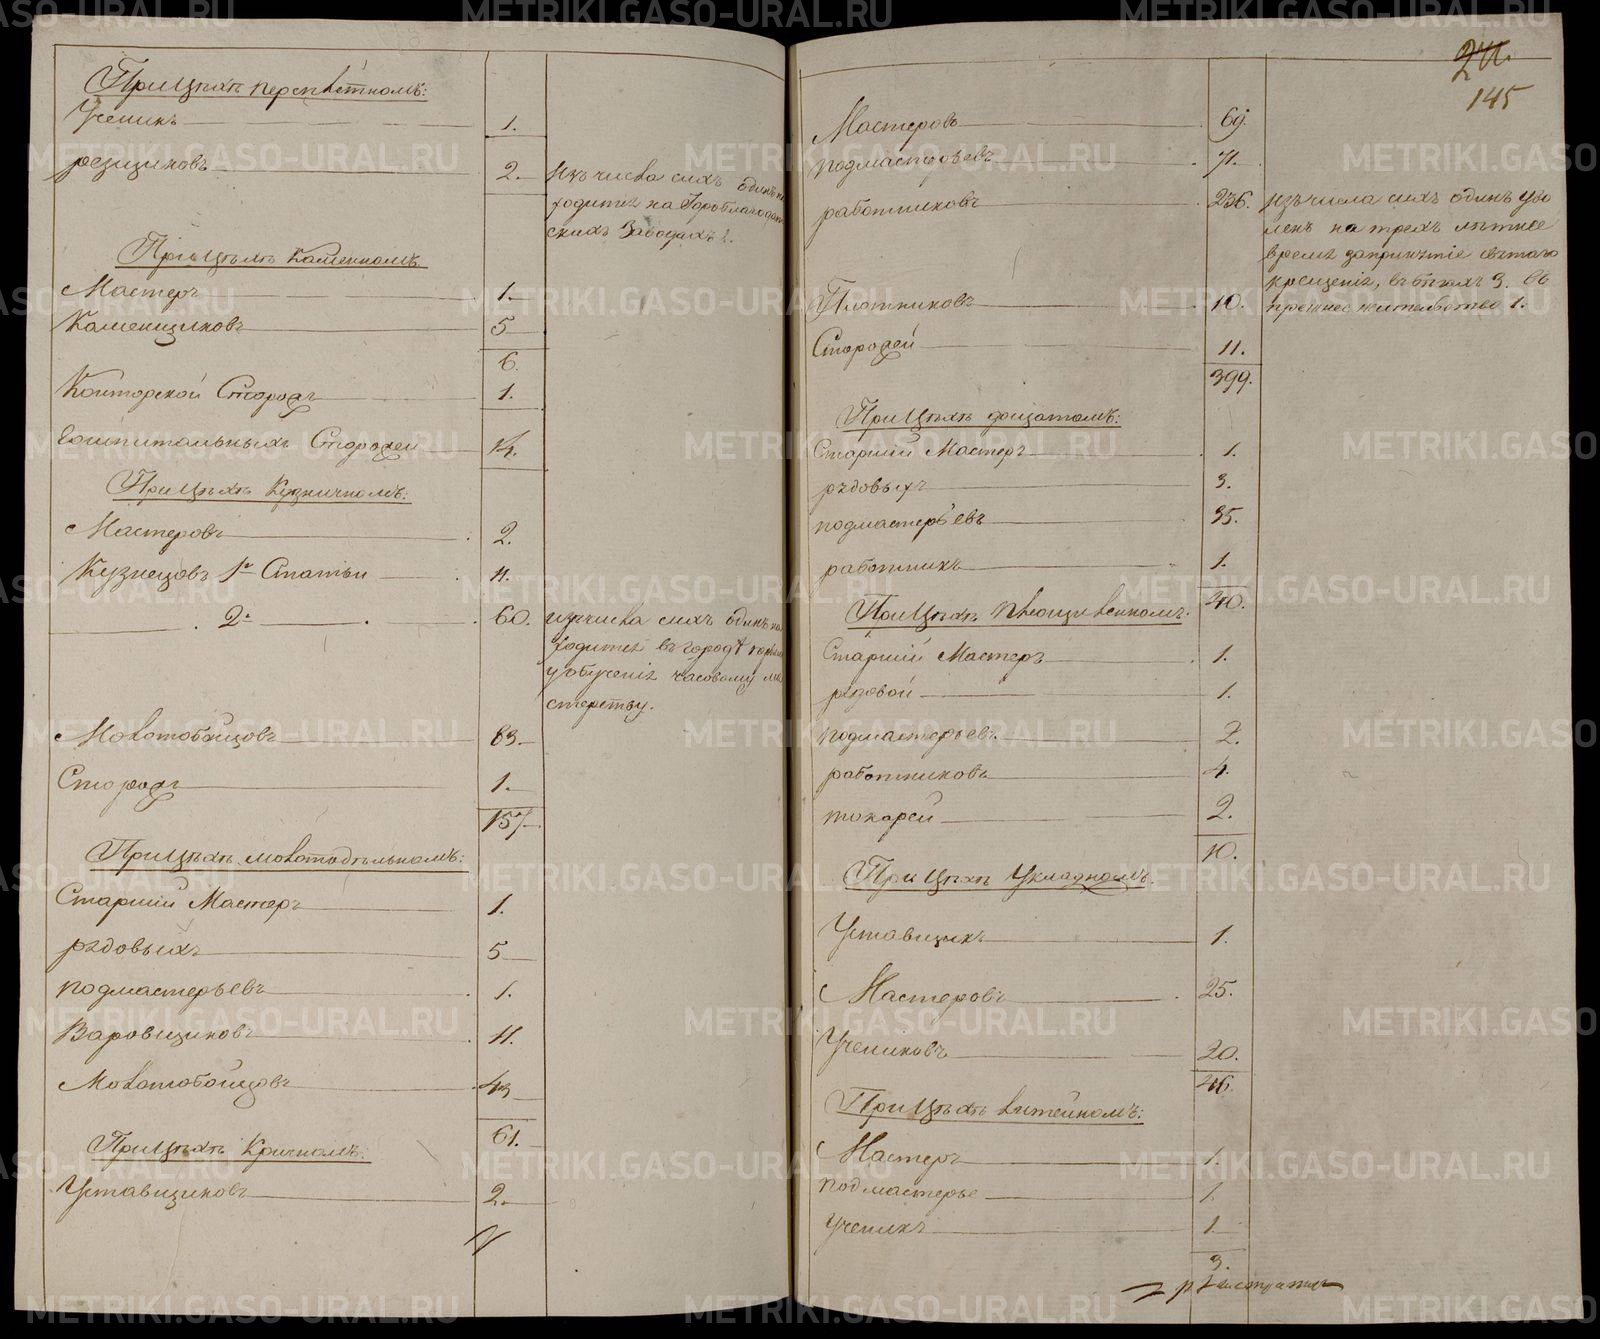 При Цехѣ
Ученикъ 1.
резщиковъ 2. Изъ числа сихъ одинъ на
ходитсѧ на Гороблагодат
скихъ Заводахъ 1.
При Цехѣ Каменномъ
Мастеръ 1.
Каменщиковъ 5
6.
Конторской Сторожъ 1.
Гошпитальныхъ Сторожей 14.
При Цехѣ Кузничномъ:
Мастеровъ 2.
Кузнецовъ 1й Статьи 11.
2й 60. изъ числа сихъ одинъ на
ходитсѧ въ городѣ
у обученіѧ часовому ма
стерству.
Молотобойцовъ 83
Сторожъ 1.
157
При Цехѣ молотодѣльномъ:
Старшій Мастеръ 1.
рѧдовыхъ 5
подмастерьевъ 1.
Варовщиковъ 11.
Молотобойцовъ 43
61.
При Цехѣ Кричномъ:
Уставщиковъ 2.
145
Мастеровъ 69.
подмастерьевъ 71.
работниковъ 236. изъ числа сихъ одинъ уво
ленъ на трехъ лѣтнее
времѧ запринѧтіе свѧтаго
крещеніѧ, въ бѣгахъ 3. въ
прежнее жительство 1.
Плотниковъ 10.
Сторожей 11.
399.
При Цехѣ дощатомъ:
Старшій Мастеръ 1.
рѧдовыхъ 3.
подмастерьевъ 35.
работникъ 1.
40.
При Цехѣ
Старшій Мастеръ 1.
рѧдовой 1.
подмастерьевъ 2.
работниковъ 4.
токарей 2.
10.
При Цехѣ Укладномъ.
Уставщикъ 1.
Мастеровъ 25.
Учениковъ 20.
46.
При Цехѣ литейномъ:
Мастеръ 1.
подмастерье 1.
ученикъ 1.
3.
METRIKI.GASO-URAL.RU